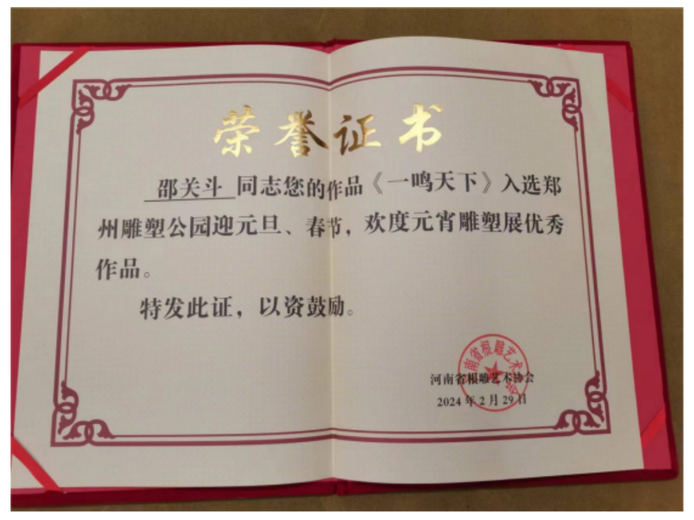 荣誉证书
邵关斗 同志您的作品《一鸣天下》入选郑
州雕塑公园迎元旦、春节，欢度元宵雕塑展优秀
作品。
特发此证，以资鼓励。
河南省根雕艺术协会
河南省根雕艺术协会
2024年2月29日